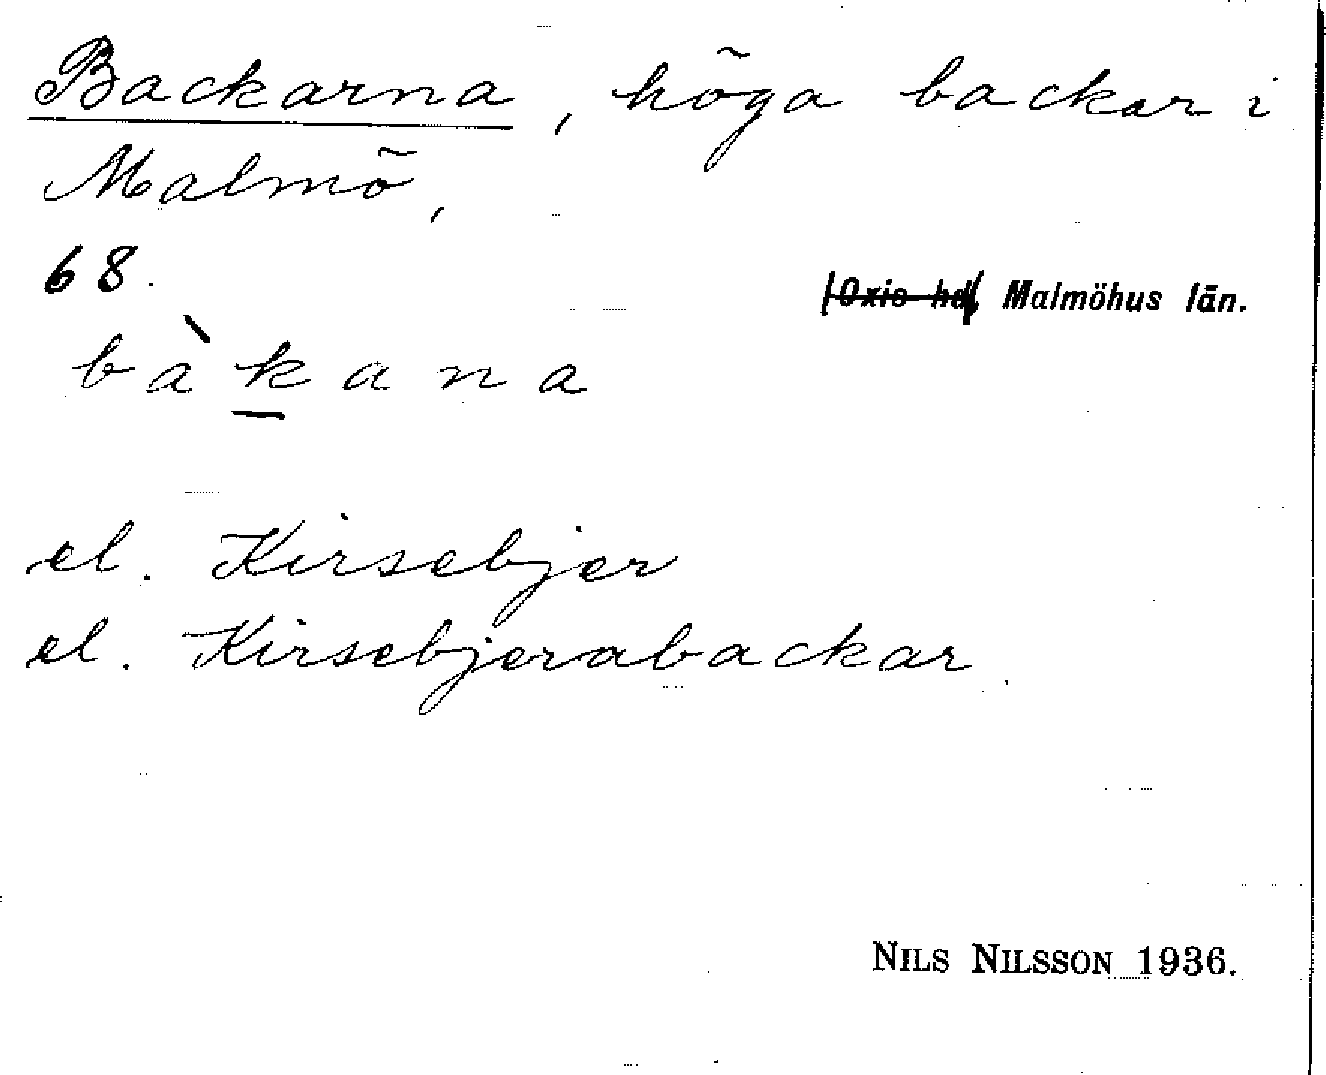 Backarna, höga backar i
Malmö,
68.
Oxie hd, Malmöhus län.
bàkana
el. Kirsebjer
el. Kirsebjerabackar.
NILS NILSSON 1936.